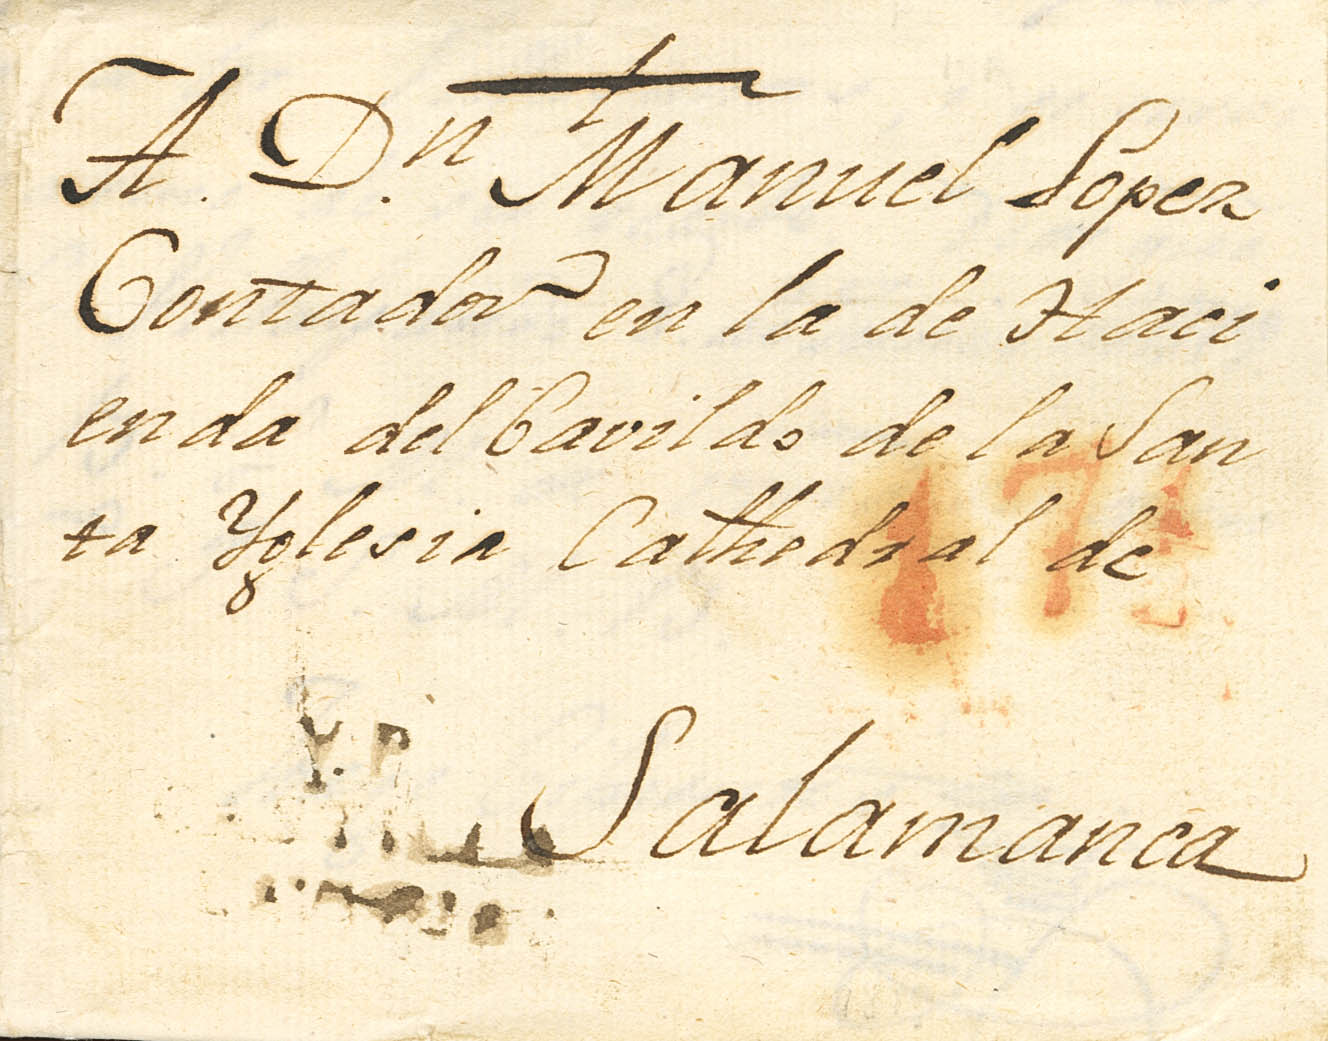 A. D.n Manuel Lopez
Contador en la de Haci
enda del Cavildo de la San
ta Yglesia Cathedral de
17
Salamanca
Y.P